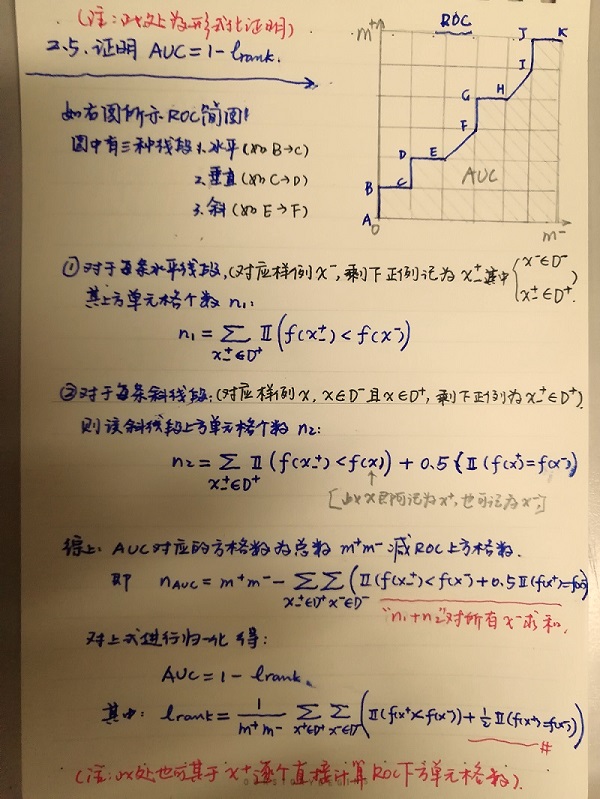 (注：此处为形式化证明)
2.5. 证明 AUC = 1 - lrank.
如右图所示 ROC简图:
图中有三种线段 1. 水平 (如 B→C)
2. 垂直 (如 C→D)
3. 斜 (如 E→F)
ROC
m⁺
J K
I
G H
F
D E
B C
A
0
AUC
m⁻
① 对于每条水平线段, (对应样例 x⁻, 剩下正例记为 x₋⁺ 其中 { x⁻∈D⁻
x₋⁺∈D⁺. )
其上方单元格个数 n₁:
n₁ = ∑_{x₋⁺∈D⁺} 𝕀(f(x₋⁺) < f(x⁻))
② 对于每条斜线段: (对应样例 x, x∈D⁻ 且 x∈D⁺, 剩下正例为 x₋⁺∈D⁺).
则该斜线段上方单元格个数 n₂:
n₂ = ∑_{x₋⁺∈D⁺} 𝕀(f(x₋⁺) < f(x)) + 0.5 (𝕀(f(x⁺) = f(x⁻))
[此 x 即可记为 x⁺, 也可记为 x⁻]
综上: AUC 对应的方格数为总数 m⁺m⁻ 减 ROC 上方格数.
即 n_AUC = m⁺m⁻ - ∑_{x₋⁺∈D⁺} ∑_{x⁻∈D⁻} (𝕀(f(x₋⁺) < f(x⁻) + 0.5 𝕀(f(x⁺) = f(x⁻))
"n₁+n₂" 对所有 x⁻ 求和.
对上式进行归一化得:
AUC = 1 - lrank.
其中: lrank = 1/(m⁺m⁻) ∑_{x⁺∈D⁺} ∑_{x⁻∈D⁻} (𝕀(f(x⁺) < f(x⁻)) + ½ 𝕀(f(x⁺) = f(x⁻)))
#
(注: 此处也可基于 x⁺ 逐个直接计算 ROC 下方单元格数).